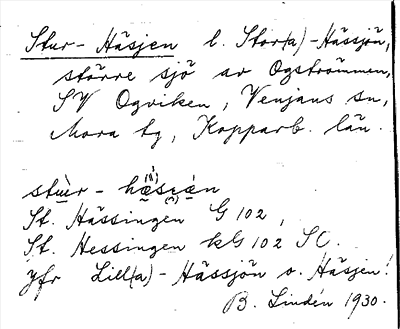 Stur-Häsjen l. Stor(a)-Hässjön,
större sjö av Ogströmmen,
SV Ogviken, Venjans sn,
Mora tg, Kopparb. län.
stùr-hæ̀sɛån
St. Hässingen G 102,
St. Hessingen kG 102 SC.
Jfr Lill(a)-Hässjön o. Häsjen!
B. Lindén 1930.